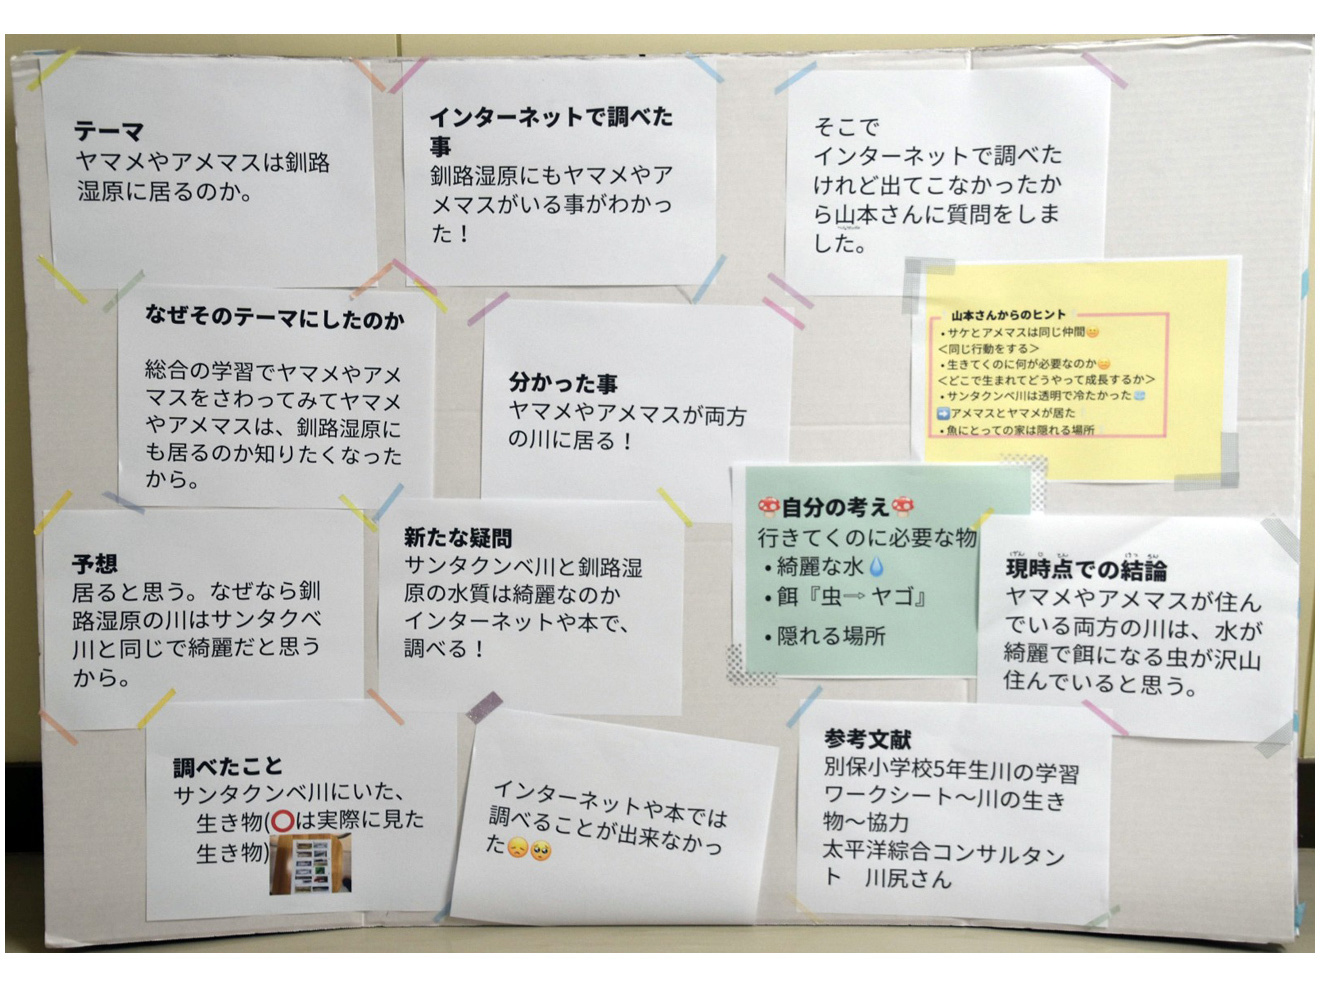 テーマ
ヤマメやアメマスは釧路
湿原に居るのか。
なぜそのテーマにしたのか
総合の学習でヤマメやアメ
マスをさわってみてヤマメ
やアメマスは、釧路湿原に
も居るのか知りたくなった
から。
予想
居ると思う。なぜなら釧
路湿原の川はサンタクベ
川と同じで綺麗だと思う
から。
調べたこと
サンタクンベ川にいた、
生き物(⭕は実際に見た
生き物)
インターネットで調べた
事
釧路湿原にもヤマメやア
メマスがいる事がわかっ
た！
分かった事
ヤマメやアメマスが両方
の川に居る！
新たな疑問
サンタクンベ川と釧路湿
原の水質は綺麗なのか
インターネットや本で、
調べる！
インターネットや本では
調べることが出来なかっ
た😞🥺
そこで
インターネットで調べた
けれど出てこなかったか
ら山本さんに質問をしま
した。
山本さんからのヒント
・サケとアメマスは同じ仲間
＜同じ行動をする＞
・生きてくのに何が必要なのか
＜どこで生まれてどうやって成長するか＞
・サンタクンベ川は透明で冷たかった
➡アメマスとヤマメが居た
・魚にとっての家は隠れる場所
🍄自分の考え🍄
行きてくのに必要な物
・綺麗な水💧
・餌『虫⇨ヤゴ』
・隠れる場所
げん じ てん けつ ろん
現時点での結論
ヤマメやアメマスが住ん
でいる両方の川は、水が
綺麗で餌になる虫が沢山
住んでいると思う。
参考文献
別保小学校5年生川の学習
ワークシート～川の生き
物～協力
太平洋綜合コンサルタン
ト　川尻さん